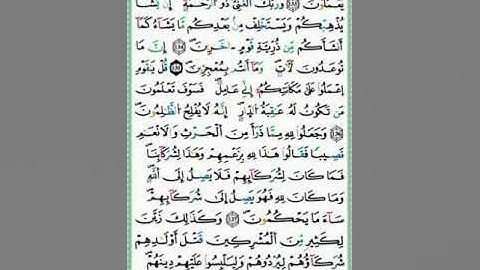 يَعْمَلُونَ وَرَبُّكَ الْغَنِيُّ ذُو الرَّحْمَةِ إِنْ يَّشَأْ
يُذْهِبْكُمْ وَيَسْتَخْلِفْ مِنۢ بَعْدِكُم مَّا يَشَآءُ كَمَآ
أَنشَأَكُم مِّن ذُرِّيَّةِ قَوْمٍ ـاخَرِينَ إِنَّ مَا
تُوعَدُونَ لَأٓتٍ وَمَآ أَنتُم بِمُعْجِزِينَ قُلْ يَٰقَوْمِ
اِعْمَلُواْ عَلَىٰ مَكَانَتِكُمُۥٓ إِنِّے عَامِلٌ فَسَوْفَ تَعْلَمُونَ
مَن تَكُونُ لَهُۥ عَٰقِبَةُ الدِّارِ إِنَّهُۥ لَا يُفْلِحُ الظَّٰلِمُونَ
وَجَعَلُواْ لِلهِ مِمَّا ذَرَأَ مِنَ الْحَرْثِ وَالْأَنْعَٰمِ
نَصِيباً فَقَالُواْ هَٰذَا لِلهِ بِزَعْمِهِمْ وَهَٰذَا لِشُرَكَآئِنَا
فَمَا كَانَ لِشُرَكَآئِهِمْ فَلَا يَصِلُ إِلَى اَللَّهِ
وَمَا كَانَ لِلهِ فَهُوَ يَصِلُ إِلَىٰ شُرَكَآئِهِمْ
سَآءَ مَا يَحْكُمُونَ وَكَذَٰلِكَ زَيَّنَ
لِكَثِيرٍ مِّنَ الْمُشْرِكِينَ قَتْلَ أَوْلَٰدِهِمْ
شُرَكَآؤُهُمْ لِيُرْدُوهُمْ وَلِيَلْبِسُواْ عَلَيْهِمْ دِينَهُمْ